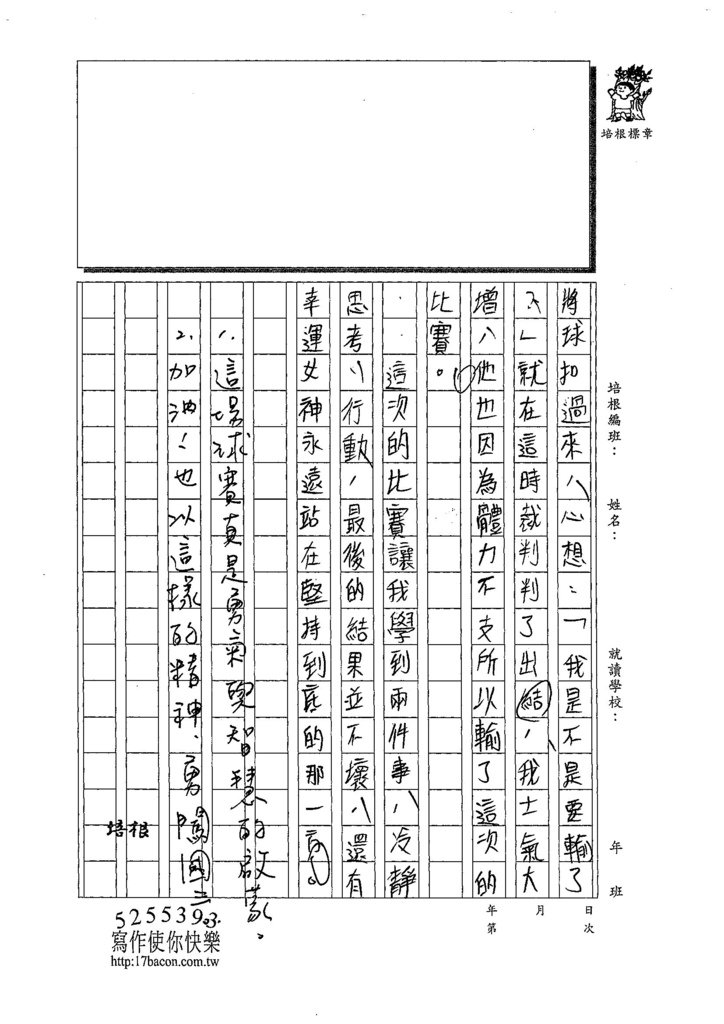 培根標章
培根編班：　姓名：　就讀學校：　年　班
日　月　年
次　第
將球扣過來，心想：「我是不是要輸了
」就在這時裁判判了出結，我士氣大
增，他也因為體力不支所以輸了這次的
比賽。
這次的比賽讓我學到兩件事，冷靜
思考，行動，最後的結果並不壞，還有
幸運女神永遠站在堅持到底的那一
1、這場球賽真是勇氣與智慧的啟蒙。
2、加油！也以這樣的精神，勇闖國三
培根
525539
寫作使你快樂
http:17bacon.com.tw